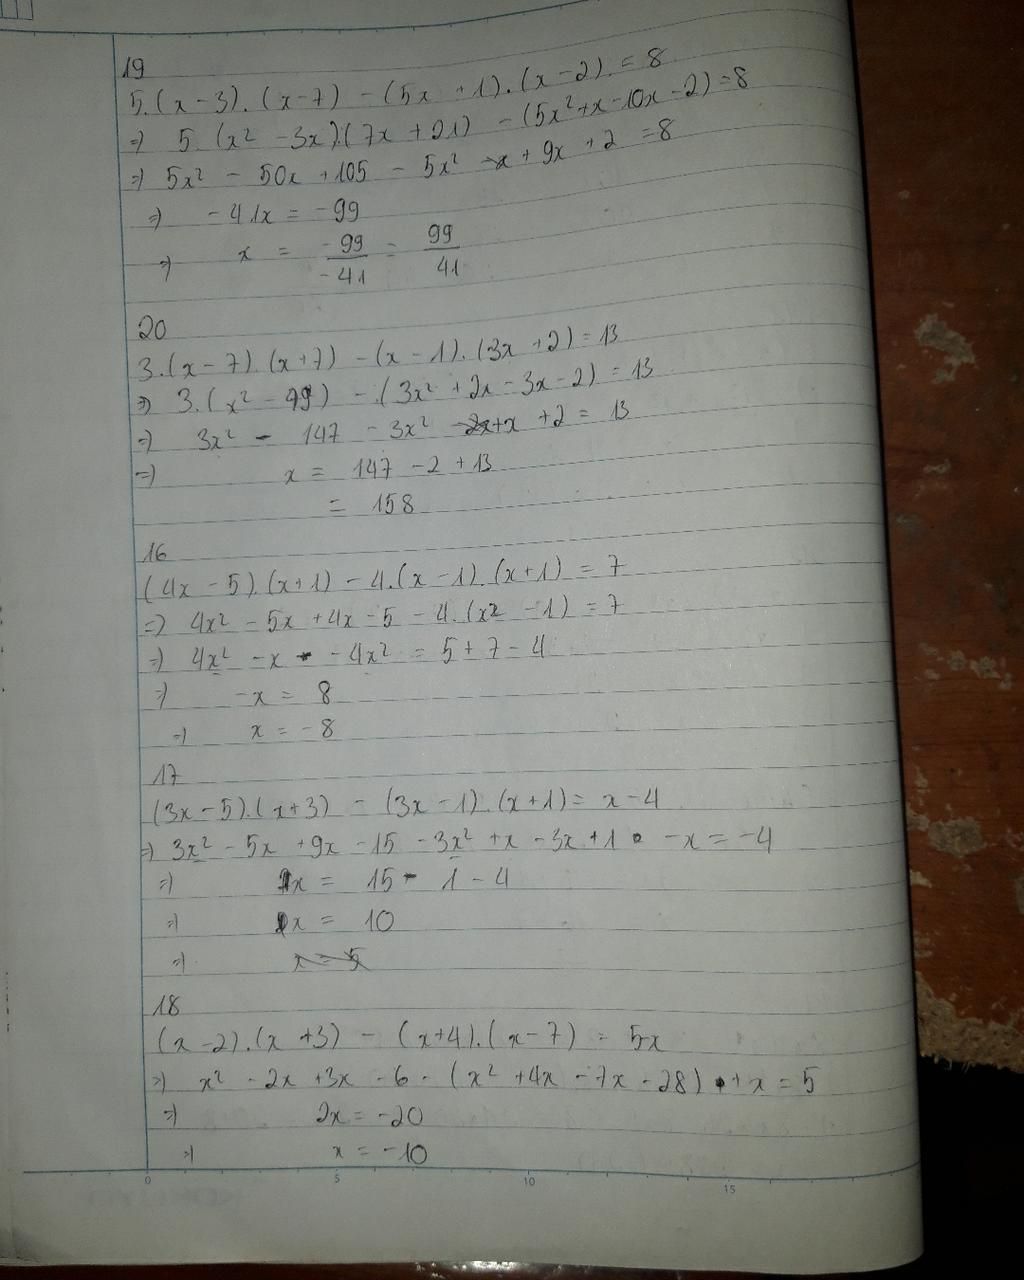 19
5.(x-3).(x-7) - (5x+1).(x-2) = 8
=> 5.(x² - 3x)(7x + 21) - (5x²+x-10x-2)=8
=> 5x² - 50x + 105 - 5x² + 9x + 2 = 8
=> -41x = -99
=> x = -99/-41 = 99/41
20
3.(x-7).(x+7) - (x-1).(3x+2) = 13
=> 3.(x² - 49) - (3x² + 2x - 3x - 2) = 13
=> 3x² - 147 - 3x² +x + 2 = 13
=> x = 147 - 2 + 13
= 158
16
(4x - 5).(x+1) - 4.(x-1).(x+1) = 7
=> 4x² - 5x + 4x - 5 - 4.(x² - 1) = 7
=> 4x² - x - 4x² = 5 + 7 - 4
=> -x = 8
=> x = -8
17
(3x-5).(x+3) - (3x-1).(x+1) = x-4
=> 3x² - 5x + 9x - 15 - 3x² + x - 3x + 1 - x = -4
=> x = 15 - 1 - 4
=> x = 10
=> x = 5
18
(x-2).(x+3) - (x+4).(x-7) = 5x
=> x² - 2x + 3x - 6 - (x² + 4x - 7x - 28) + x = 5
=> 2x = -20
=> x = -10
0 5 10 15